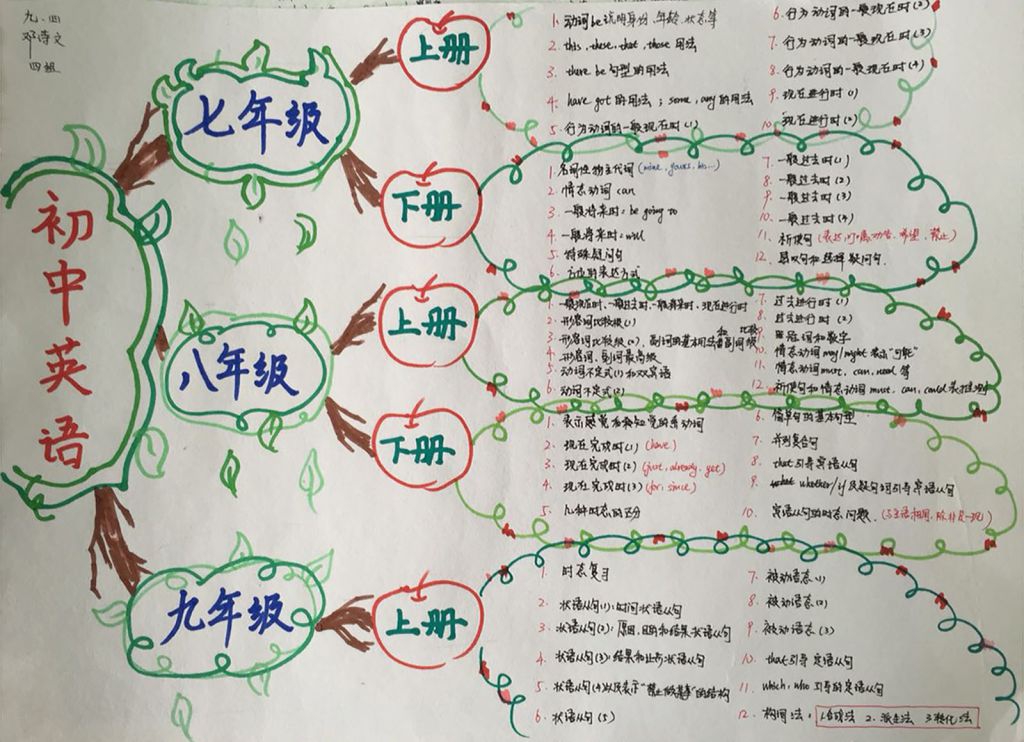 九.四
邓诗文
四组
初中英语
七年级
上册
1. 动词be说明身份、年龄、状态等
2. this, these, that, those 用法
3. there be 句型的用法
4. have got 的用法；some, any的用法
5. 行为动词的一般现在时(1)
6. 行为动词的一般现在时(2)
7. 行为动词的一般现在时(3)
8. 行为动词的一般现在时(4)
9. 现在进行时(1)
10. 现在进行时(2)
下册
1. 名词性物主代词 (mine, yours, his...)
2. 情态动词 can
3. 一般将来时：be going to
4. 一般将来时：will
5. 特殊疑问句
6. 方位的表达方式
7. 一般过去时(1)
8. 一般过去时(2)
9. 一般过去时(3)
10. 一般过去时(4)
11. 祈使句
12. 感叹句和选择疑问句.
八年级
上册
1. 一般现在时、一般过去时、一般将来时、现在进行时
2. 形容词比较级(1)
3. 形容词比较级(2)、副词的基本用法和副词比较级
4. 形容词、副词最高级
5. 动词不定式(1)和双宾语
6. 动词不定式(2)
7. 过去进行时(1)
8. 过去进行时(2)
9. 冠词和数字
10. 情态动词 may/might 表示"可能"
11. 情态动词 must, can, need 等
12. 祈使句和情态动词 must, can, could
下册
1. 表示感觉和知觉的系动词
2. 现在完成时(1) (have)
3. 现在完成时(2) (just, already, yet)
4. 现在完成时(3) (for, since)
5. 几种时态的区分
6. 简单句的基本句型
7. 并列复合句
8. that引导宾语从句
9. whether/if 及疑问词引导宾语从句
10. 宾语从句的时态问题.
九年级
上册
1. 时态复习
2. 状语从句(1)：时间状语从句
3. 状语从句(2)：原因、目的和结果状语从句
4. 状语从句(3)：结果和让步状语从句
5. 状语从句(4)以及表示"禁止做某事"的结构
6. 状语从句(5)
7. 被动语态(1)
8. 被动语态(2)
9. 被动语态(3)
10. that引导定语从句
11. which, who 引导的定语从句
12. 构词法： 1.合成法 2. 派生法 3.转化法